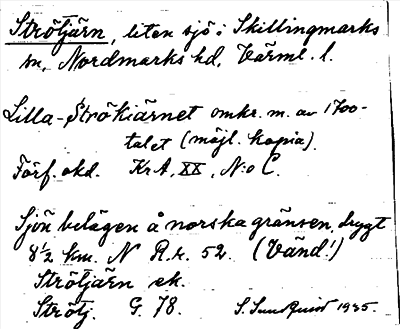 Strötjärn, liten sjö i Skillingmarks
sn, Nordmarks hd, Värml. l.
Lilla-Strökiärnet omkr. m. av 1700-
talet (möjl. kopia).
Förf. okd. KrA, XX, N:o C.
Sjön belägen å norska gränsen, drygt
8 1/2 km. N R.r. 52. (Vänd!)
Strötjärn ek.
Strötj. G. 78. 1935.